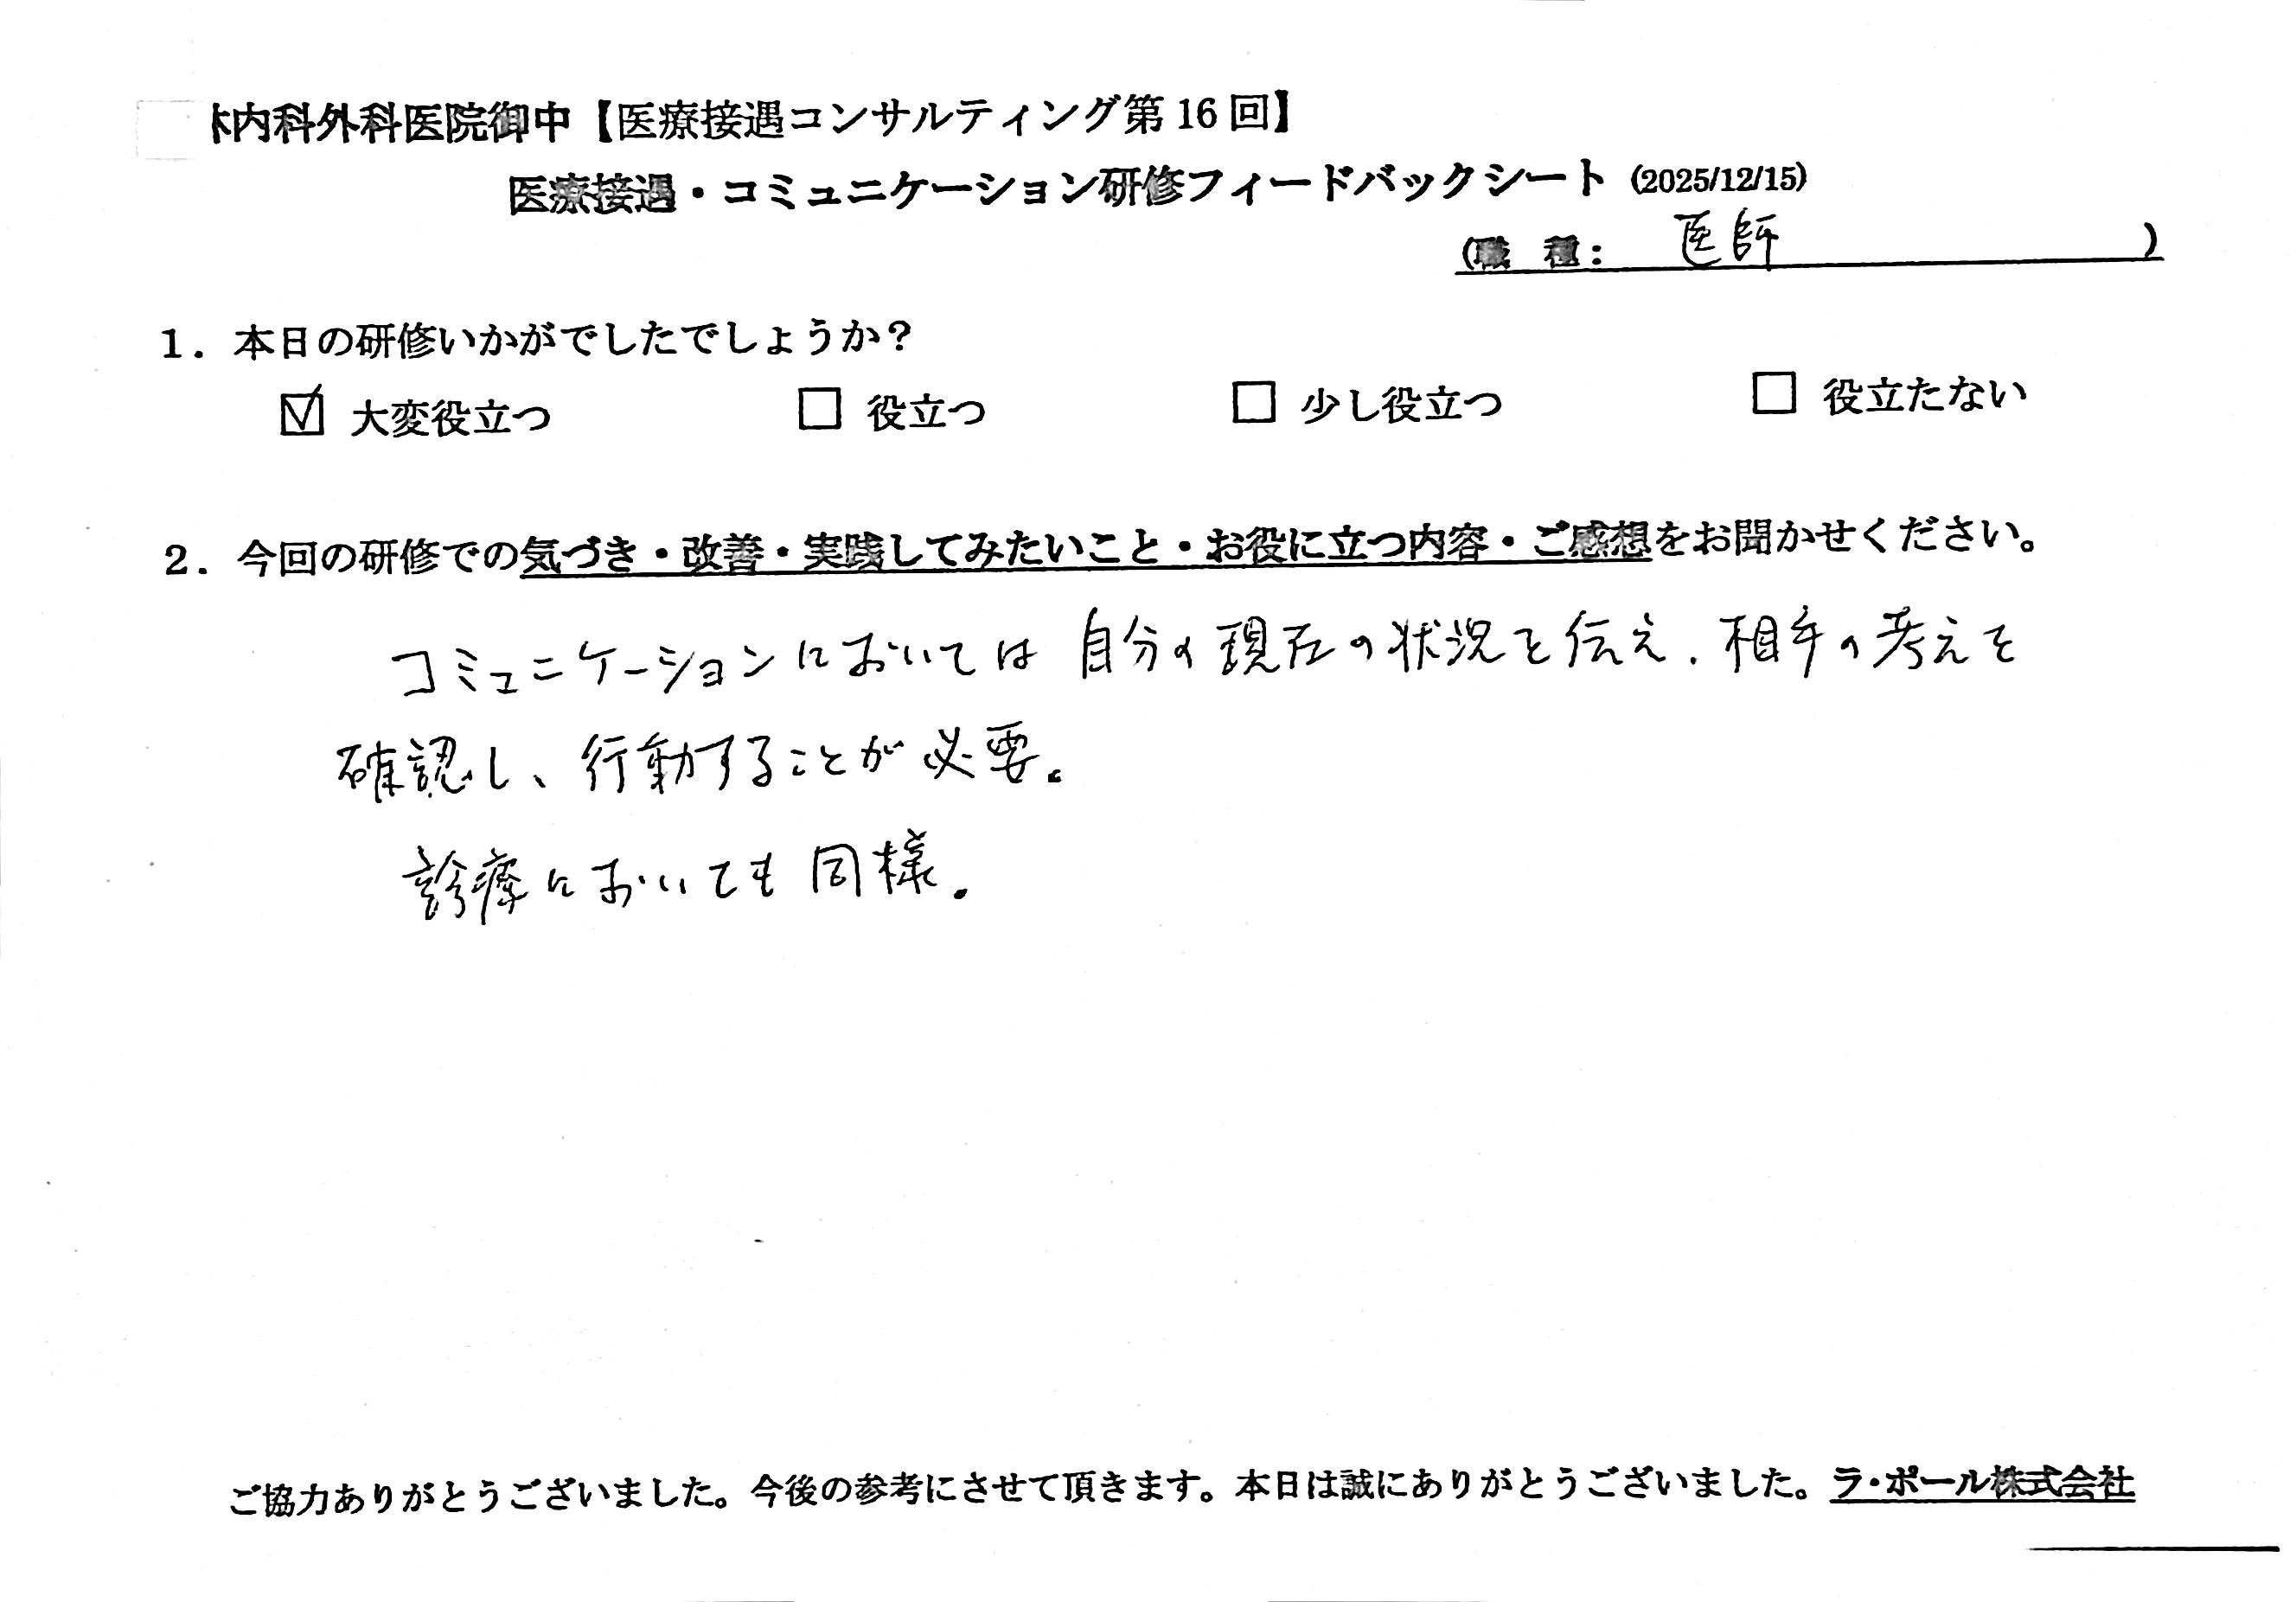 内科外科医院御中【医療接遇コンサルティング第16回】
医療接遇・コミュニケーション研修フィードバックシート (2025/12/15)
(職 種: 医師 )
1. 本日の研修いかがでしたでしょうか?
☑ 大変役立つ □ 役立つ □ 少し役立つ □ 役立たない
2. 今回の研修での気づき・改善・実践してみたいこと・お役に立つ内容・ご感想をお聞かせください。
コミュニケーションにおいては 自分の現在の状況を伝え、相手の考えを
確認し、行動することが必要。
診療においても同様。
ご協力ありがとうございました。今後の参考にさせて頂きます。本日は誠にありがとうございました。ラ・ポール株式会社